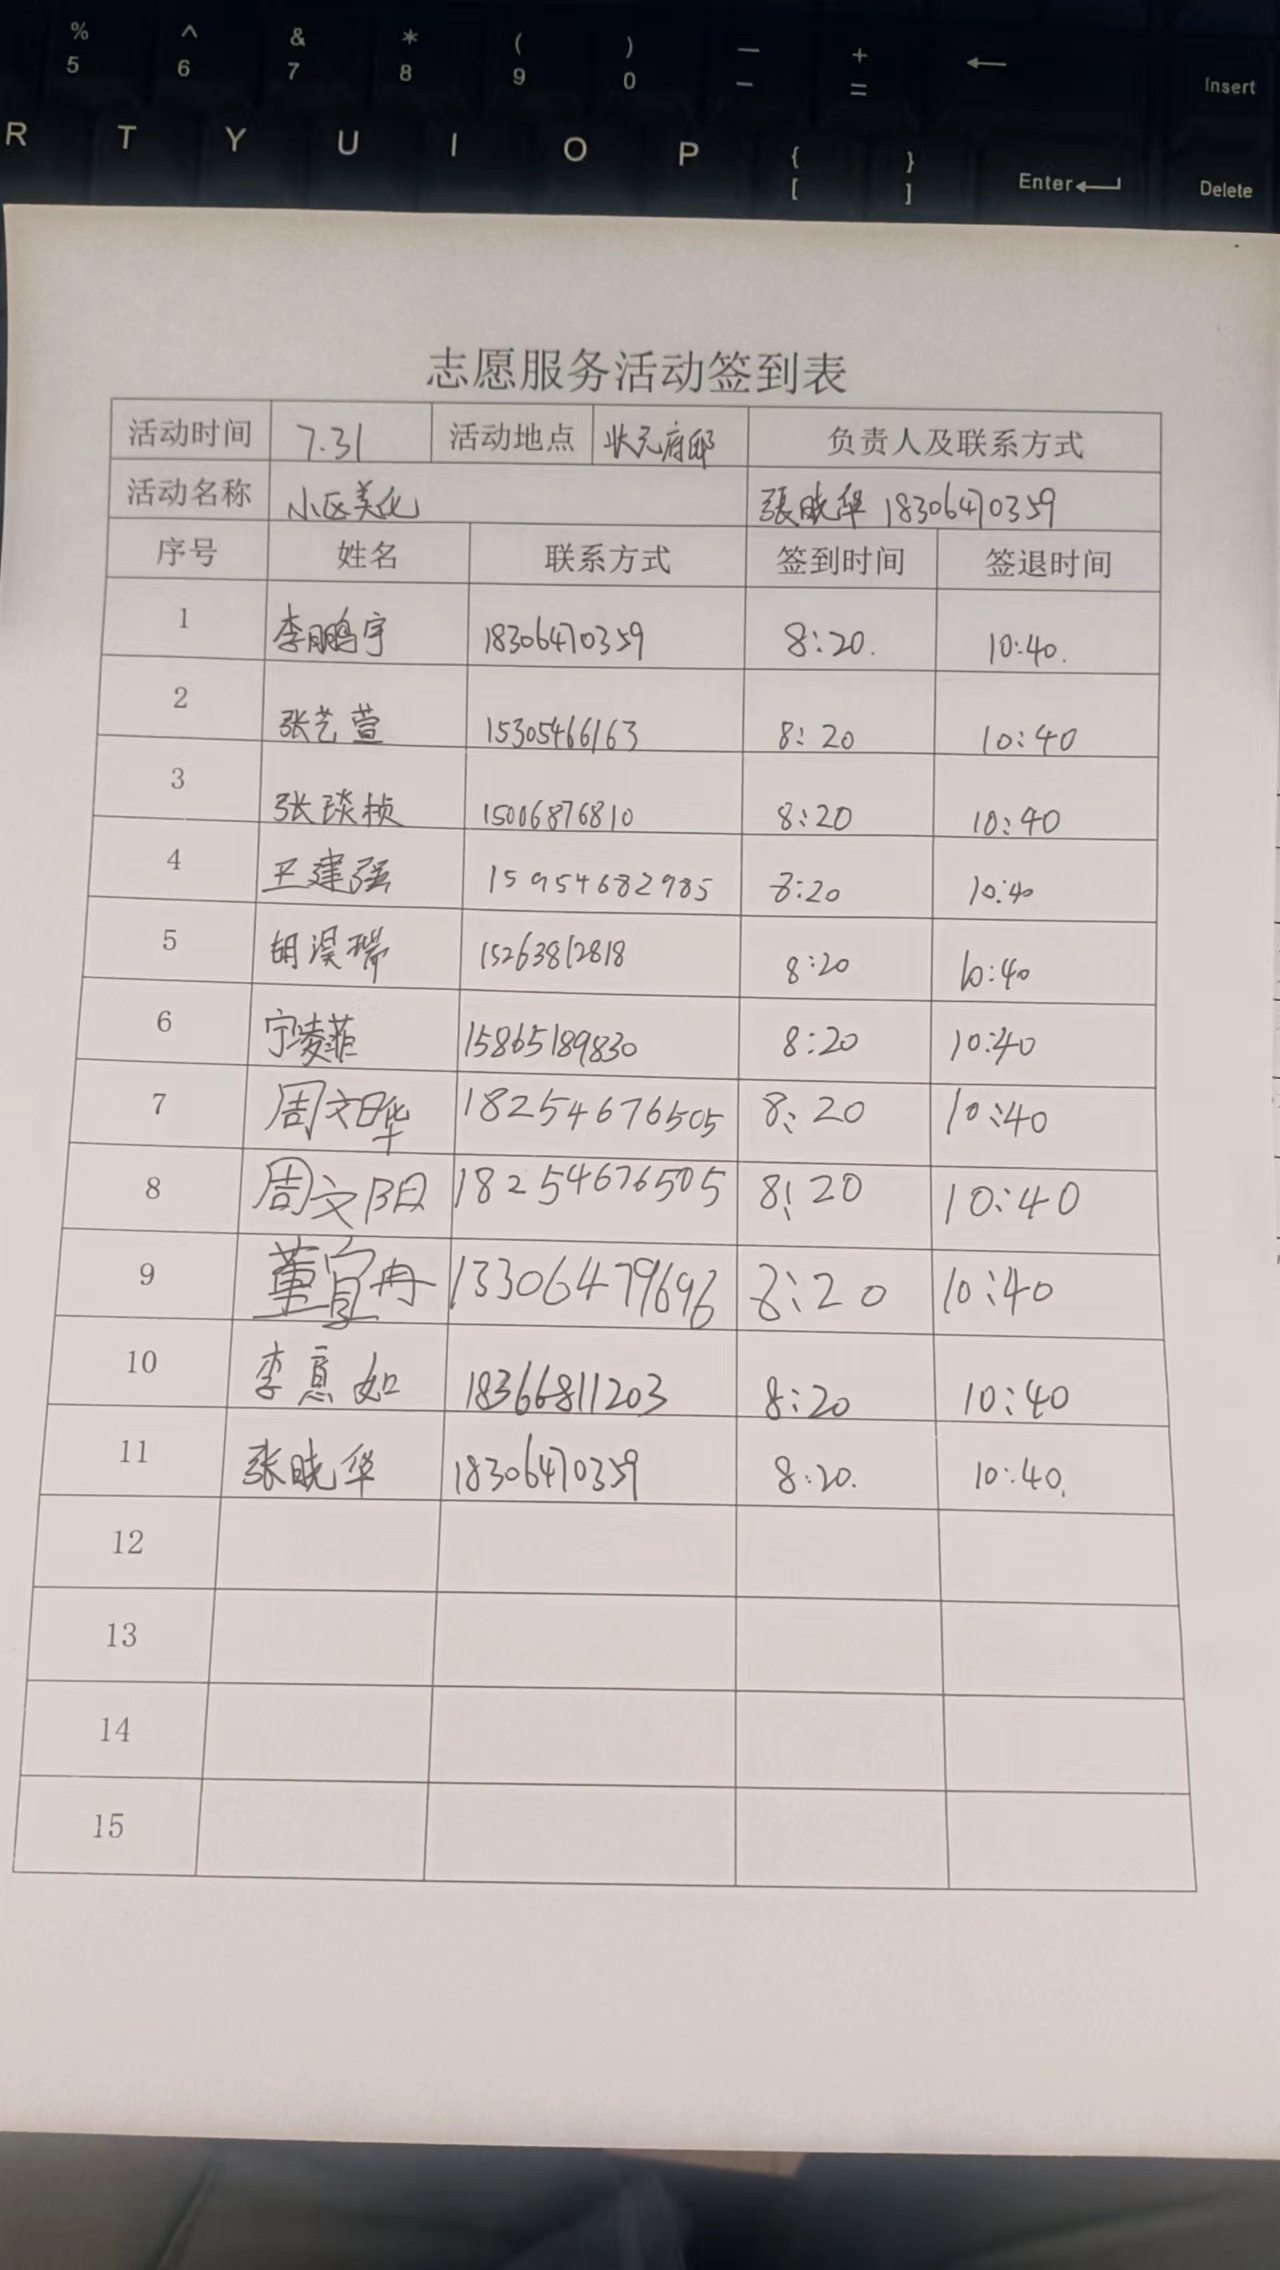 % ^ & * ( ) — + ←
5 6 7 8 9 0 - = Insert
R T Y U I O P { }
[ ] Enter Delete
志愿服务活动签到表
活动时间 7.31 活动地点 状元府邸 负责人及联系方式
活动名称 小区美化 張晓华 18306470359
序号 姓名 联系方式 签到时间 签退时间
1 李鹏宇 18306470359 8:20. 10:40.
2 张艺萱 15305466163 8:20 10:40
3 张琰桢 15006876810 8:20 10:40
4 王建强 15954682985 8:20 10:40
5 胡淏瑞 15263812818 8:20 10:40
6 宁凌菲 15865189830 8:20 10:40
7 周文晔 18254676505 8:20 10:40
8 周文阳 18254676505 8:20 10:40
9 董宜冉 13306479696 8:20 10:40
10 李意如 18366811203 8:20 10:40
11 张晓华 18306470359 8:20. 10:40.
12
13
14
15